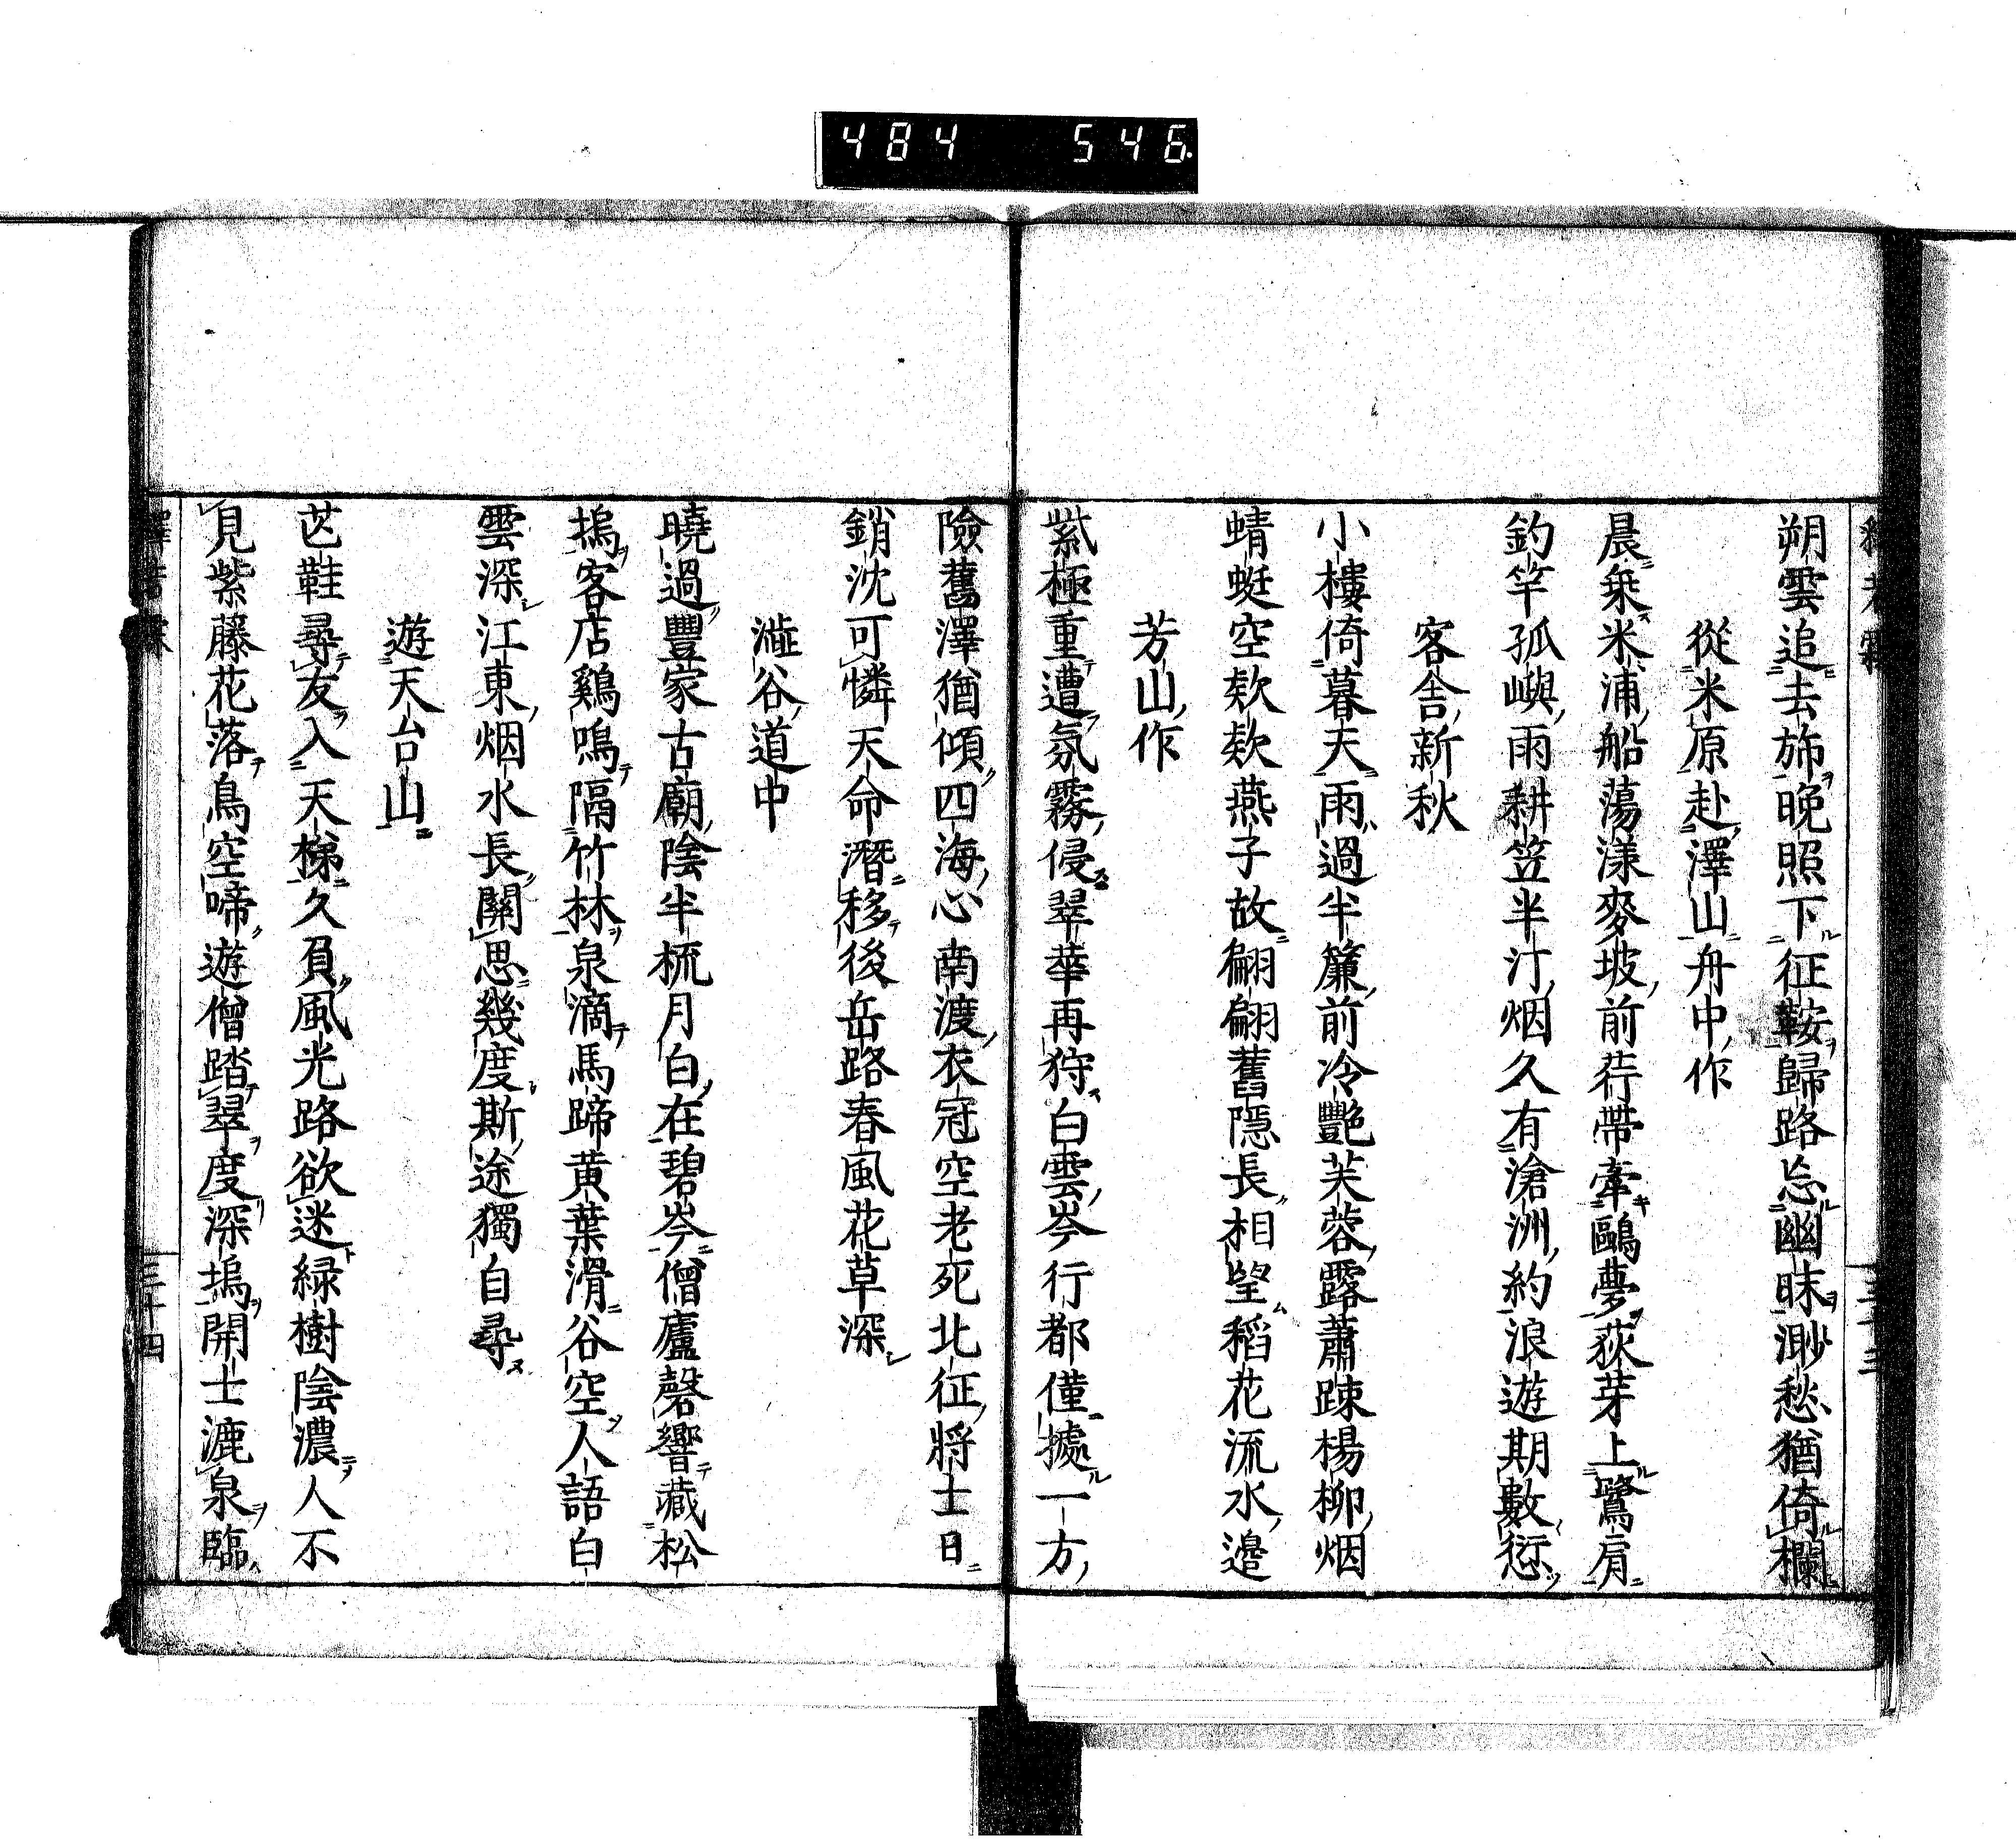 484 546.
朔雲追去斾晚照下征鞍歸路忘幽昧渺愁猶倚欄
從米原赴澤山舟中作
晨乗米浦船蕩漾麥坡前荇帶牽鷗夢荻芽上鷺肩
釣竿孤嶼雨耕笠半汀烟久有滄洲約浪遊期數愆
客舎新秋
小樓倚暮天雨過半簾前冷艷芙蓉露蕭踈楊柳烟
蜻蜓空欵欵燕子故翩翩舊隱長相望稻花流水邉
芳山作
紫極重遭氛霧侵翠華再狩白雲岑行都僅據一方
險舊澤猶傾四海心南渡衣冠空老死北征將士日
銷沈可憐天命潛移後岳路春風花草深
澁谷道中
曉過豐家古廟陰半梳月白在碧岑僧廬磬響藏松
塢客店鷄鳴隔竹林泉滴馬蹄黄葉滑谷空人語白
雲深江東烟水長關思幾度斯途獨自尋
遊天台山
芒鞋尋友入天梯久負風光路欲迷緑樹陰濃人不
見紫藤花落鳥空啼遊僧踏翠度深塢開士漉泉臨
三十四